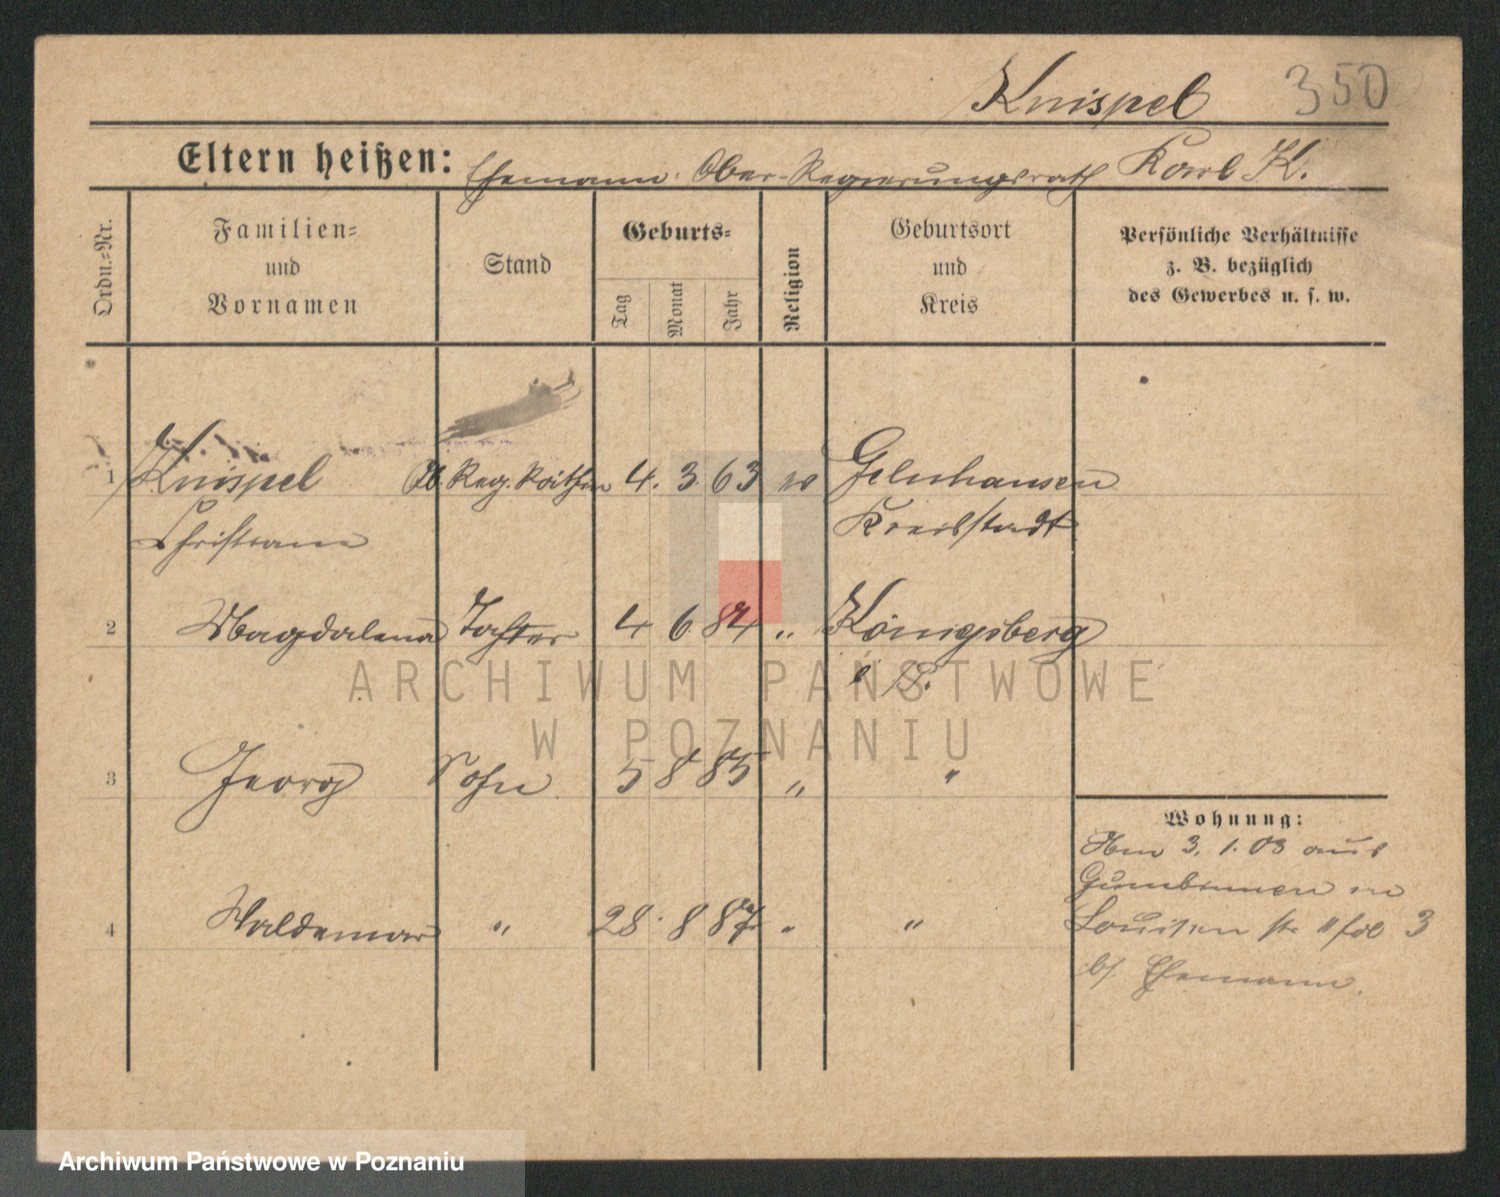 Knispel 350
Eltern heißen: Ehemann: Ober-Regierungsrath Karl K.
Ordn.=Nr.
Familien=
und
Vornamen
Stand
Geburts=
Tag
Monat
Jahr
Religion
Geburtsort
und
Kreis
Persönliche Verhältnisse
z. B. bezüglich
des Gewerbes u. s. w.
1 Knispel Ob. Reg. Räthin 4. 3. 63 Gelnhausen
Christiane Kreisstadt
2 Magdalena Tochter 4 6 84 „ Königsberg
i/P.
3 Georg Sohn 5 8 85 „ „
4 Waldemar „ 28. 8 87 „ „
Wohnung:
Am 3. 1. 03 aus
Gumbinnen in
Louisen str 3
b/ Ehemann.
ARCHIWUM PAŃSTWOWE
W POZNANIU
Archiwum Państwowe w Poznaniu